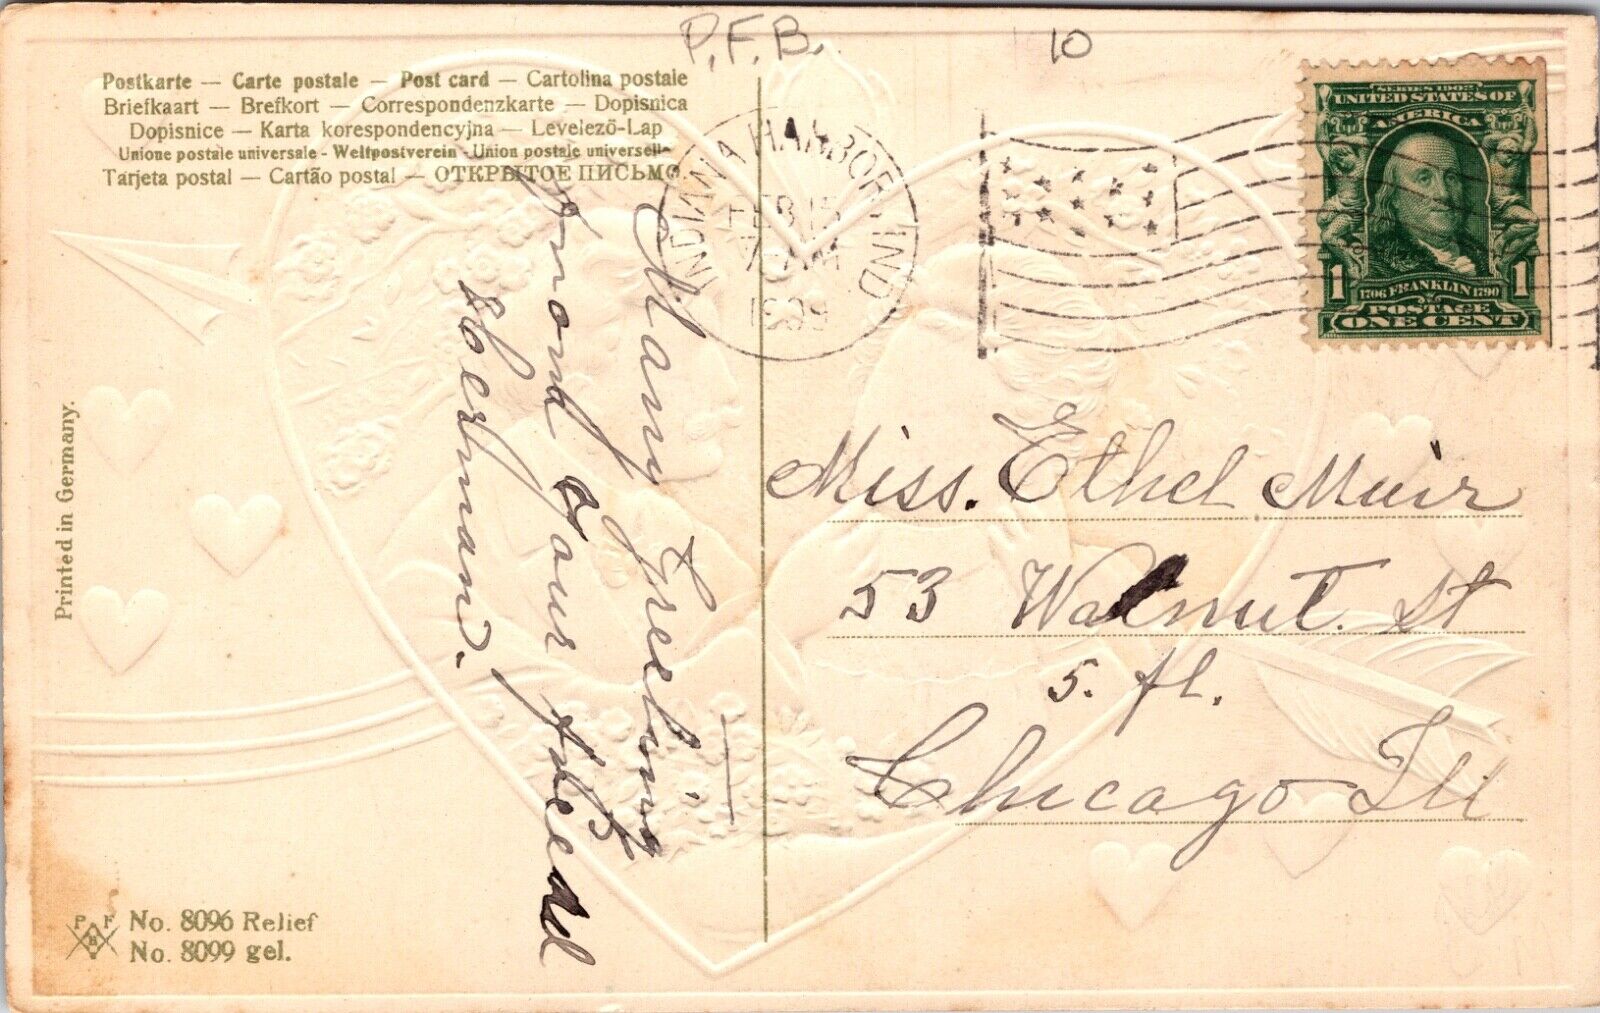 P.F.B. 10
Postkarte — Carte postale — Post card — Cartolina postale
Briefkaart — Brefkort — Correspondenzkarte — Dopisnica
Dopisnice — Karta korespondencyjna — Levelező-Lap
Unione postale universale - Weltpostverein - Union postale universelle
Tarjeta postal — Cartão postal — ОТКРЫТОЕ ПИСЬМО
INDIANA HARBOR, IND
FEB 15
7 AM
1909
SERIES 1902
UNITED STATES OF
AMERICA
1 1
1706 FRANKLIN 1790
POSTAGE
ONE CENT
Many Greeting
from your friend
Herman.
Miss. Ethel Muir
53 Walnut. St
5. fl.
Chicago Ill
Printed in Germany.
P F B
No. 8096 Relief
No. 8099 gel.